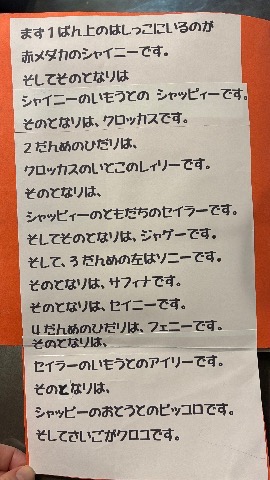 まず１ばん上のはしっこにいるのが
赤メダカのシャイニーです。
そしてそのとなりは
シャイニーのいもうとの シャッピィーです。
そのとなりは、クロッカスです。
２だんめのひだりは、
クロッカスのいとこのレィリーです。
そのとなりは、
シャッピィーのともだちのセイラーです。
そしてそのとなりは、ジャゲーです。
そして、３だんめの左はソニーです。
そのとなりは、サフィナです。
そのとなりは、セイニーです。
４だんめのひだりは、フェニーです。
そのとなりは、
セイラーのいもうとのアイリーです。
そのとなりは、
シャッピーのおとうとのピッコロです。
そしてさいごがクロコです。